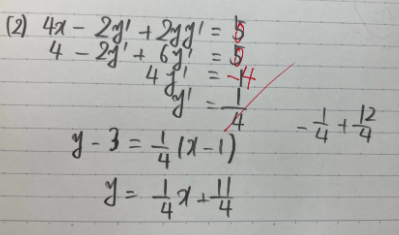 (2) 4x - 2y' + 2yy' = 0
4 - 2y' + 6y' = 0
4y' = -4
y' = 1/4
y - 3 = 1/4 (x - 1)
- 1/4 + 12/4
y = 1/4 x + 11/4